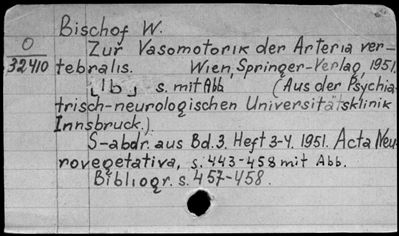 Bischof W.
O
32410
Zur Vasomotorik der Arteria ver-
tebralis. Wien, Springer-Verlag, 1951.
[1b] s. mit Abb (Aus der Psychia-
trisch-neurologischen Universitätsklinik
Innsbruck.)
S-abdr. aus Bd. 3. Heft 3-4. 1951. Acta Neu-
rovegetativa, s. 443-458 mit Abb.
Bibliogr. s. 457-458.